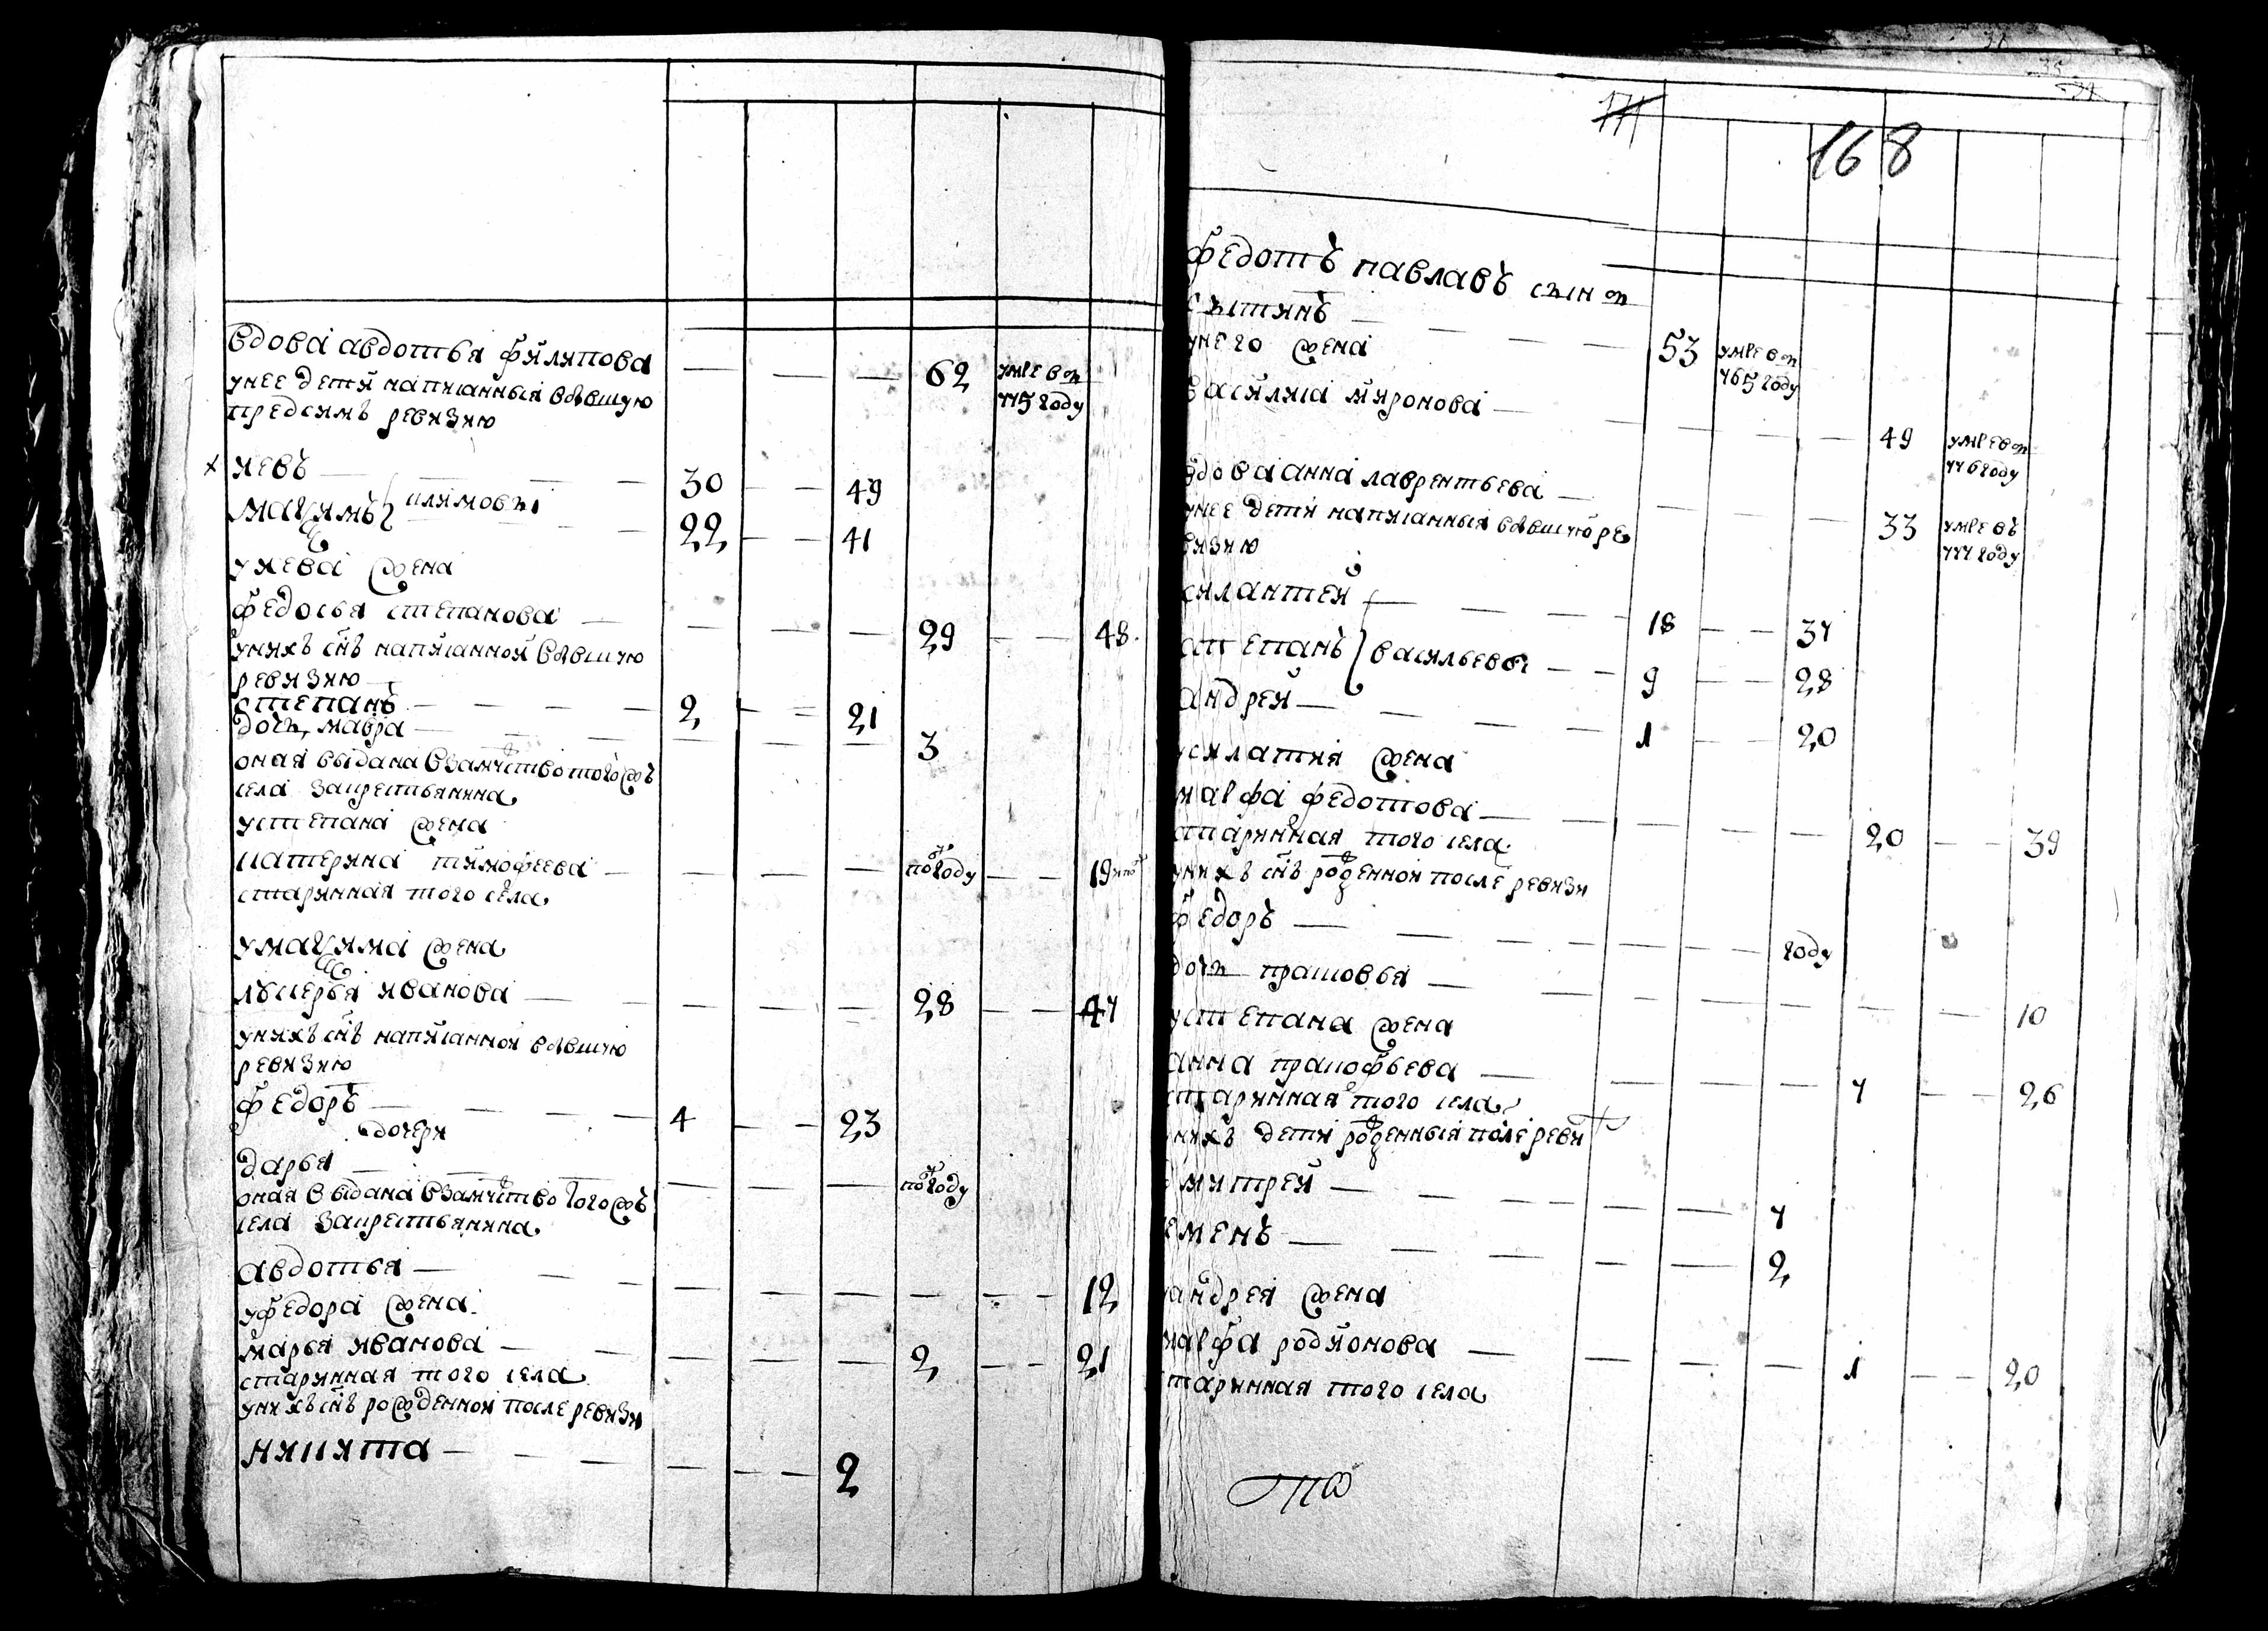 вдова авдотья филипова — — — 62 умре въ 775 году
унее дети написанныя вбывшую
предсимъ ревизию
х иевъ — — 30 — — 49
максимъ } климовы — 22 — — 41
уиева жена
федосья степанова — — — — 29 — — 48
унихъ снъ написанной вбывшую
ревизию
степанъ — — — 2 — — 21
дочь мавра — — — — — — 3
оная выдана взамужство того жъ
села закрестьянина
устепана жена
катерина тимофеева — — — — полгоду — — 19 ипол
старинная того села
умаксима жена
лукерья иванова — — — — — 28 — — 47
унихъ снъ написанной вбывшую
ревизию
федоръ — — — 4 — — 23
дочери
дарья — — — — — — полгоду
оная выдана взамужство того жъ
села закрестьянина
авдотья — — — — — — — — — 12
уфедора жена
марья иванова — — — — — 2 — — 21
старинная того села
унихъ снъ рожденной после ревизи
никита — — — — — — 2
171
168
федотъ павлавъ сынъ
сытинъ — — — — 53 умре въ 765 году
унего жена
василиса миронова — — — — — 49 умре въ 776 году
вдова анна лаврентьева — — — — 33 умре въ 777 году
унее дети написанныя вбывшую ре
визию
силантей — — — 18 — — 37
степанъ } васильевы — — 9 — — 28
андрей — — — — 1 — — 20
усилатия жена
марфа федотова — — — — — 20 — — 39
старинная того села
унихъ снъ рожденной после ревизи
федоръ — — — — — — году
дочь прасковья — — — — — — — — 10
устепана жена
анна пракофьева — — — — 7 — — 26
старинная того села
унихъ дети рожденныя после реви
дмитрей — — — — — — 7
семенъ — — — — — — 2
уандрея жена
марфа родионова — — — — 1 — — 20
старинная того села